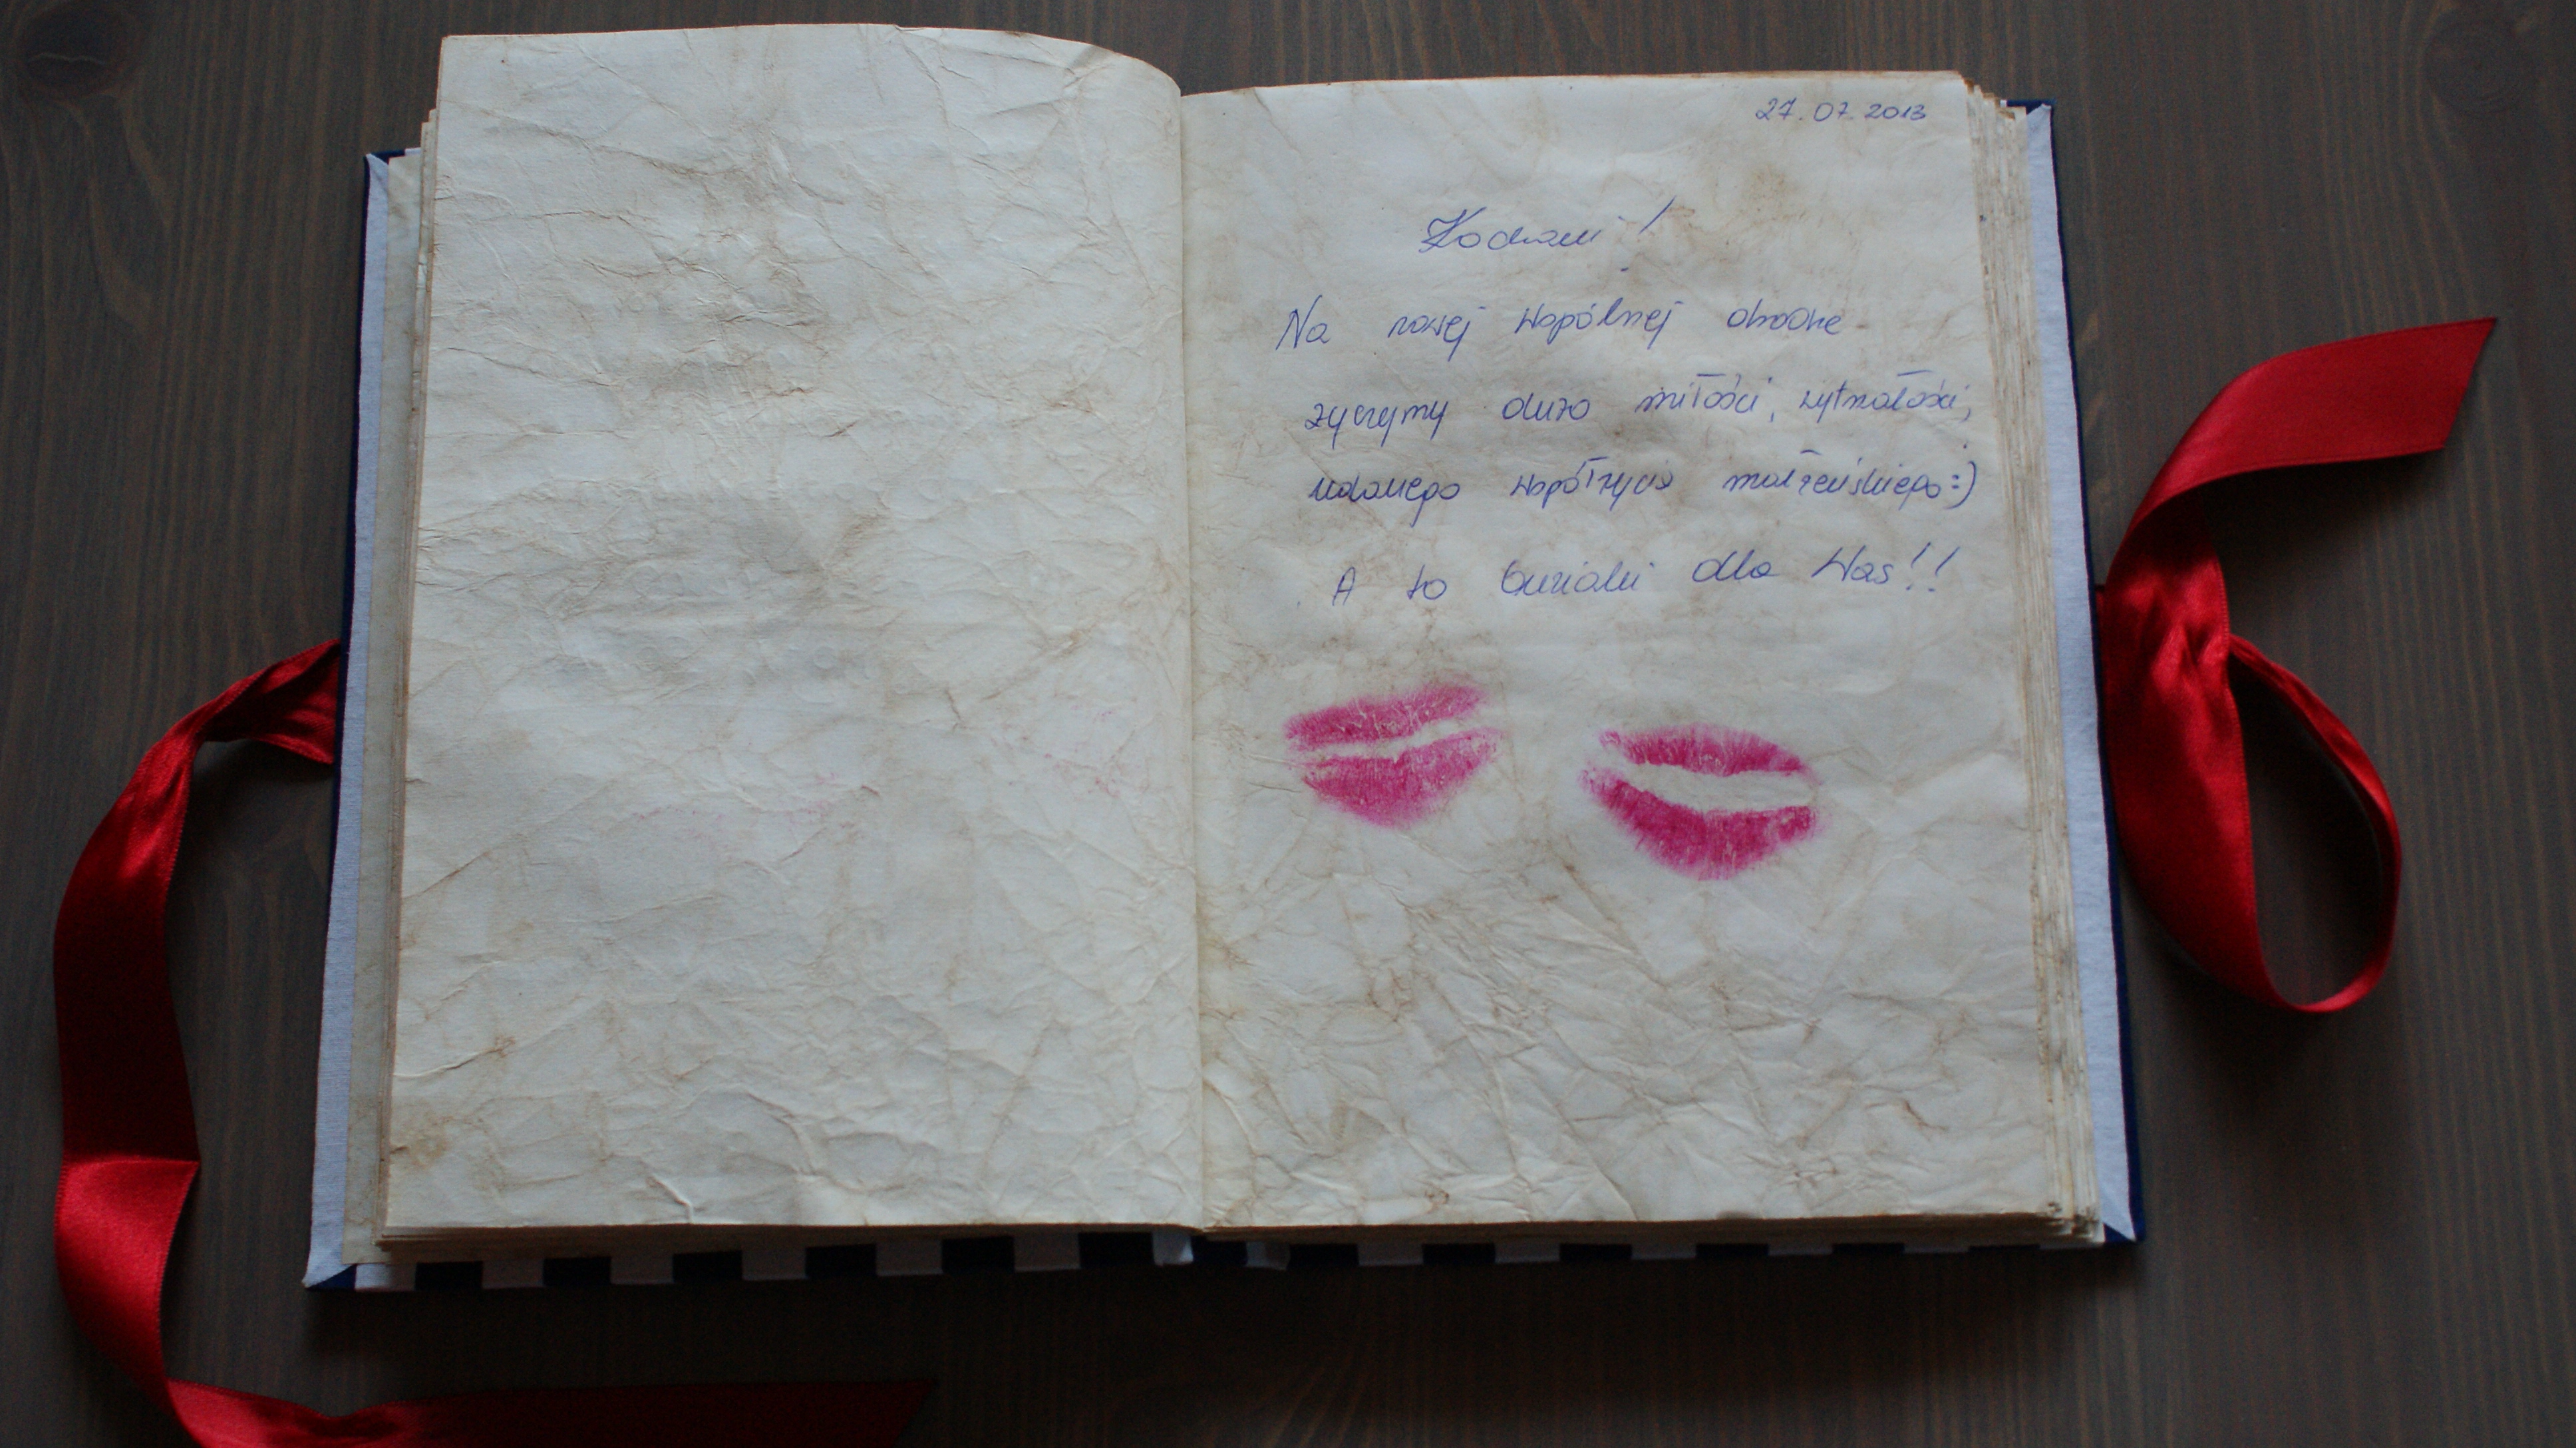 27.07.2013
Kochani!
Na nowej wspólnej drodze
życzymy dużo miłości, wytrwałości,
udanego współżycia małżeńskiego :)
A to buziaki dla Was!!